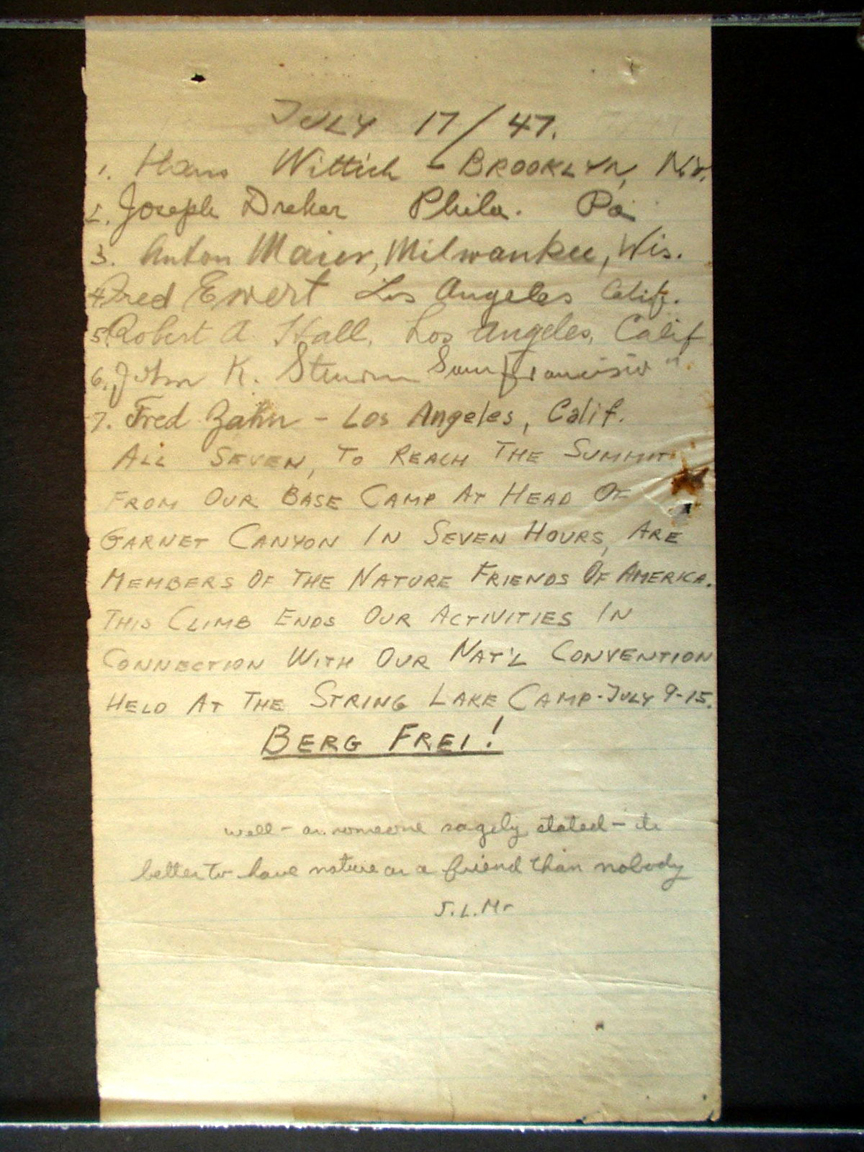 JULY 17/47.
1. Hans Wittich - BROOKLYN, N.Y.
2. Joseph Dreher Phila. Pa
3. Anton Maier, Milwaukee, Wis.
4 Fred Ewert Los Angeles Calif.
5. Robert A Hall, Los Angeles, Calif
6. John K. San Francisco "
7. Fred Zahn - Los Angeles, Calif.
ALL SEVEN, TO REACH THE SUMMIT
FROM OUR BASE CAMP AT HEAD OF
GARNET CANYON IN SEVEN HOURS, ARE
MEMBERS OF THE NATURE FRIENDS OF AMERICA.
THIS CLIMB ENDS OUR ACTIVITIES IN
CONNECTION WITH OUR NAT'L CONVENTION
HELD AT THE STRING LAKE CAMP - JULY 9-15.
BERG FREI!
well - as someone sagely stated - its
better to have nature as a friend than nobody